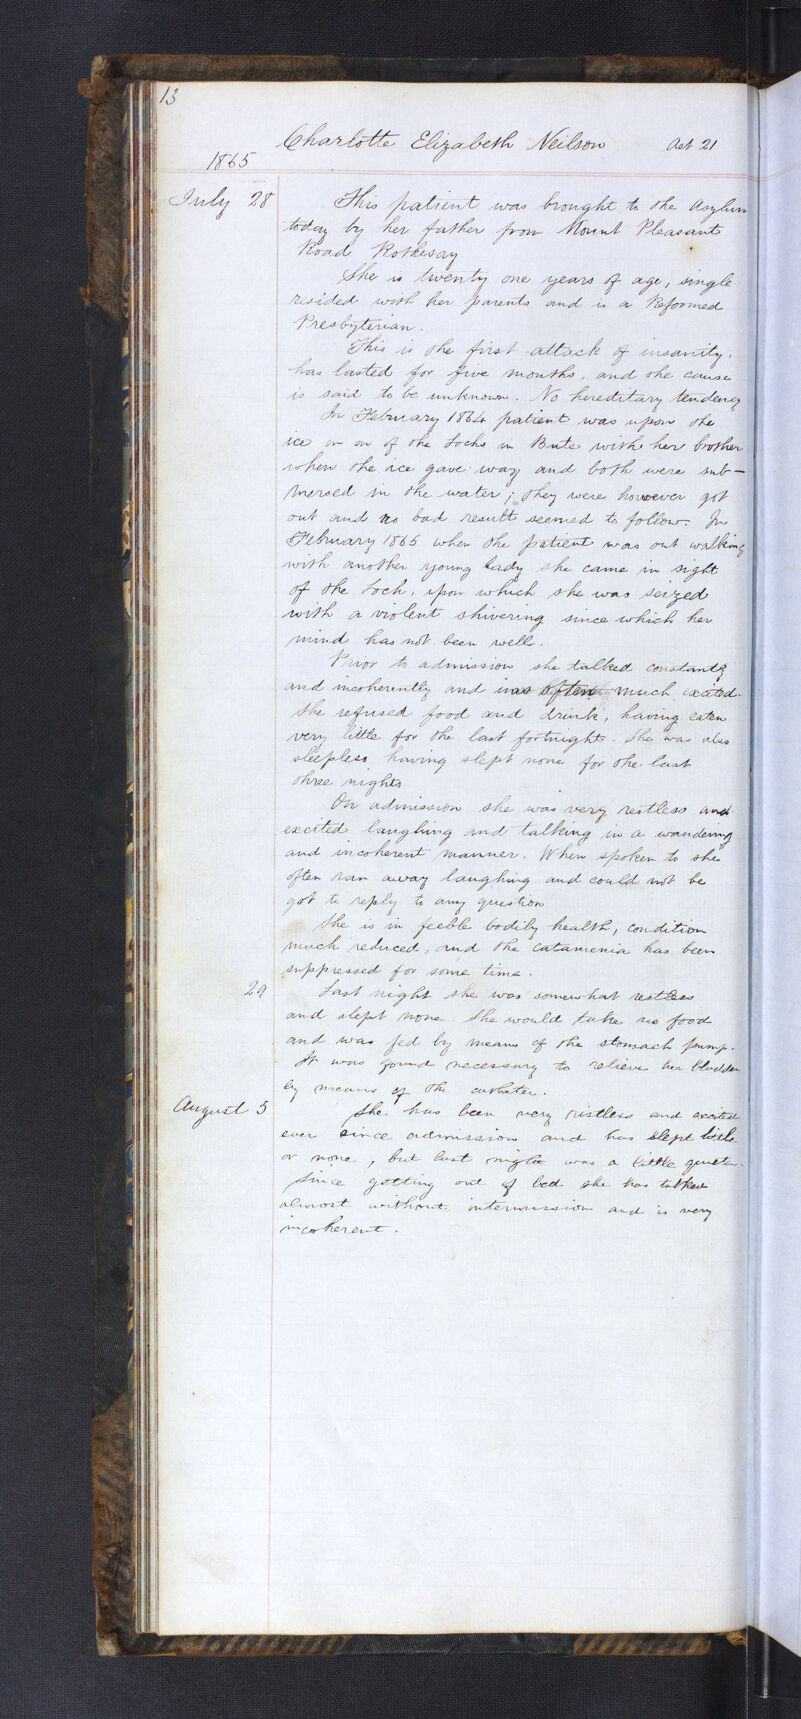 13
Charlotte Elizabeth Neilson Aet 21
1865
July 28 This patient was brought to the Asylum
today by her father from Mount Pleasant
Road Rothesay
She is twenty one years of age, single
resided with her parents and is a Reformed
Presbyterian.
This is the first attack of insanity,
has lasted for five months, and the cause
is said to be unknown. No hereditary tendency
In February 1864 patient was upon the
ice on on of the Lochs in Bute with her brother
when the ice gave way and both were sub-
mersed in the water; they were however got
out and no bad result seemed to follow. In
February 1865 when the patient was out walking
with another young lady she came in sight
of the Loch, upon which she was seized
with a violent shivering since which her
mind has not been well.
Prior to admission she talked constantly
and incoherently and was often much excited.
She refused food and drink, having eaten
very little for the last fortnight. She was also
sleepless having slept none for the last
three nights
On admission she was very restless and
excited laughing and talking in a wandering
and incoherent manner. When spoken to she
often ran away laughing and could not be
got to reply to any question
She is in feeble bodily health, condition
much reduced, and the catamenia has been
suppressed for some time.
29 Last night she was somewhat restless
and slept none. She would take no food
and was fed by means of the stomach pump.
It was found necessary to relieve her bladder
by means of the catheter.
August 5 She has been very restless and excited
ever since admission and has slept little
or none, but last night was a little quieter.
Since getting out of bed she has talked
almost without intermission and is very
incoherent.